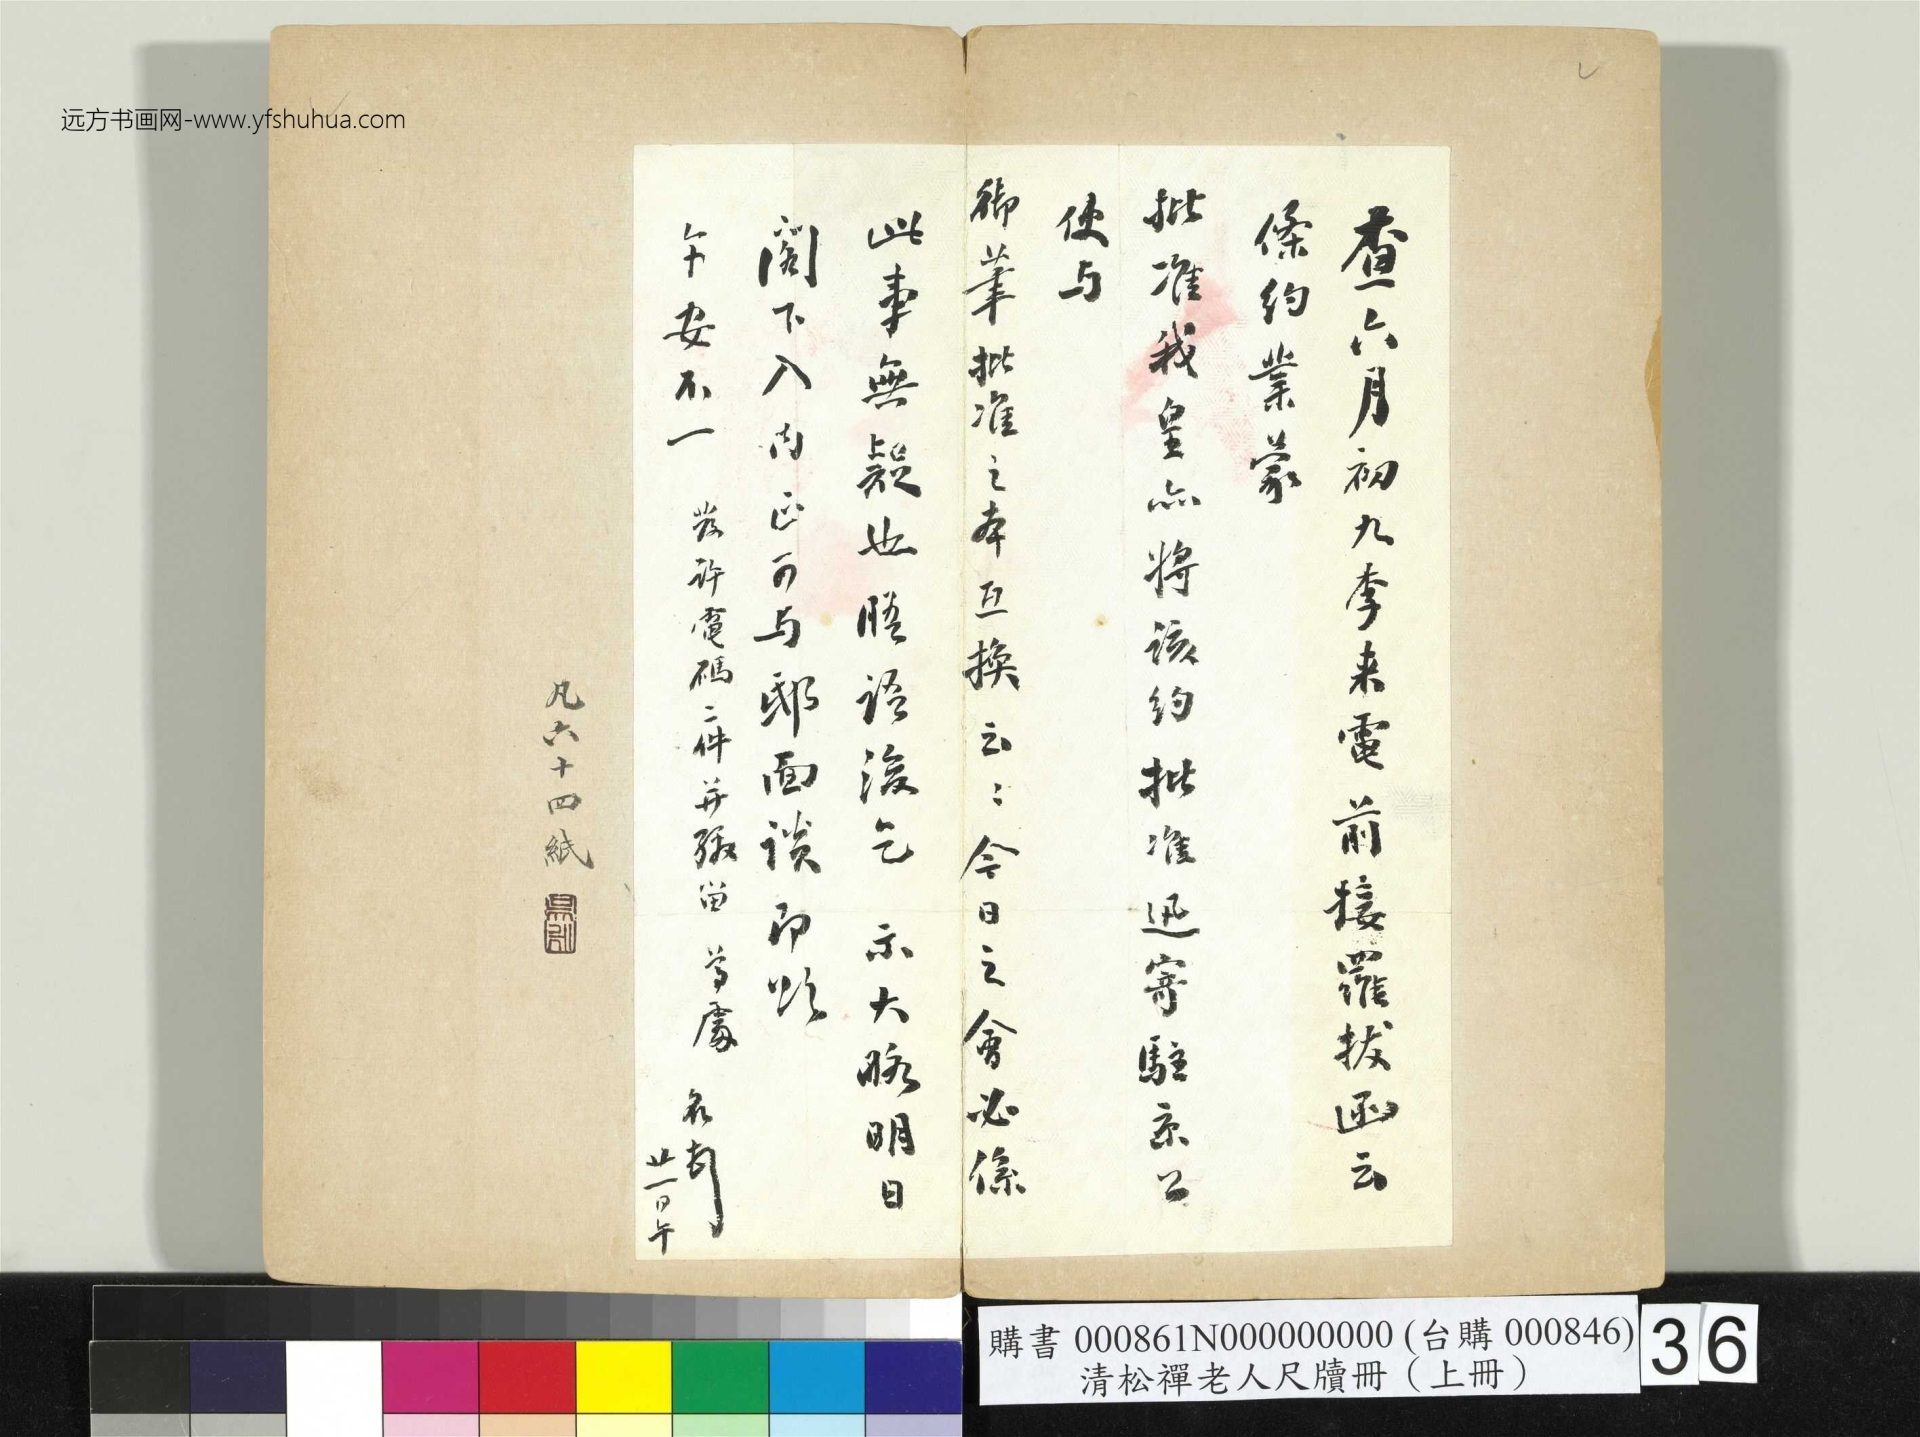 远方书画网-www.yfshuhua.com
查六月初九李来電前接羅拔函云
條約業蒙
批准我皇亦將該約批准迅寄駐京公
使与
御筆批准之本互換云〻今日之會必係
此事無疑也晤語後乞 示大略明日
閣下入内正可与邸面談即頌
午安不一
發許電碼二件并繳留 尊處 名
廿一日午
凡六十四紙
購書 000861N000000000 (台購 000846)
清松禪老人尺牘冊（上冊）
36